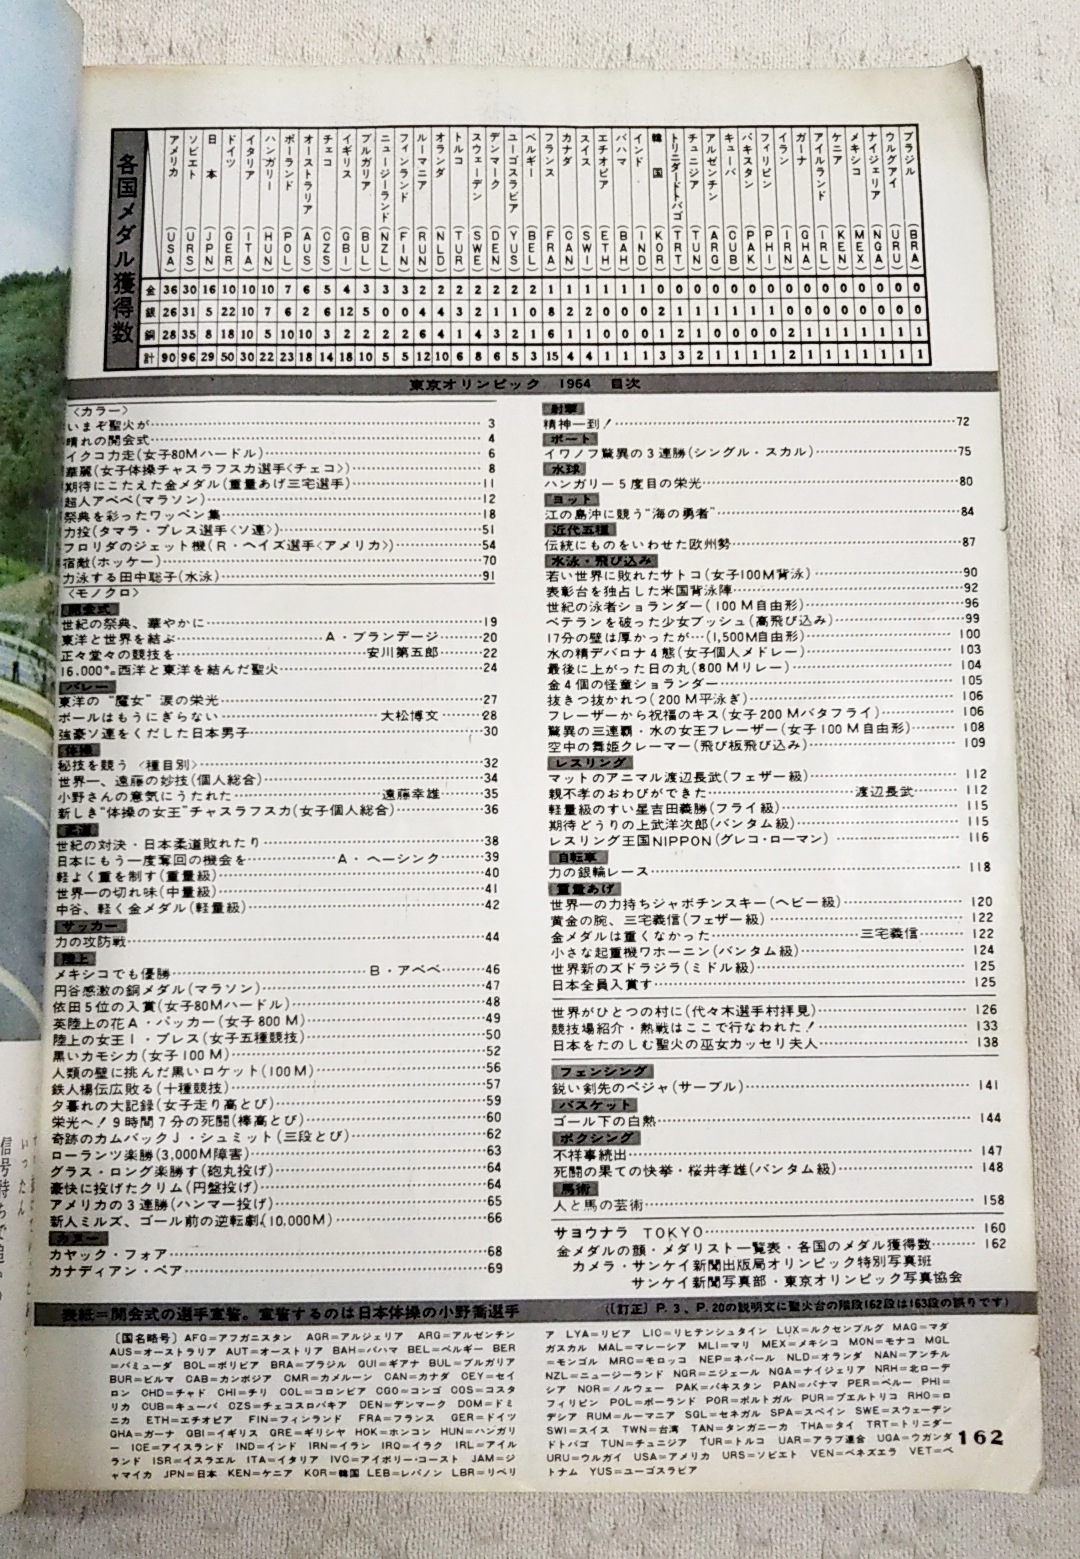 各国メダル獲得数
アメリカ ソビエト 日本 ドイツ イタリア ハンガリー ポーランド オーストラリア チェコ イギリス ブルガリア ニュージーランド フィンランド ルーマニア オランダ トルコ スウェーデン デンマーク ユーゴスラビア ベルギー フランス カナダ スイス エチオピア バハマ インド 韓国 トリニダードトバゴ チュニジア アルゼンチン キューバ パキスタン フィリピン イラン ガーナ アイルランド ケニア メキシコ ナイジェリア ウルグアイ ブラジル
(USA) (URS) (JPN) (GER) (ITA) (HUN) (POL) (AUS) (CZS) (GBI) (BUL) (NZL) (FIN) (RUN) (NLD) (TUR) (SWE) (DEN) (YUS) (BEL) (FRA) (CAN) (SWI) (ETH) (BAH) (IND) (KOR) (TRT) (TUN) (ARG) (CUB) (PAK) (PHI) (IRN) (GHA) (IRL) (KEN) (MEX) (NGA) (URU) (BRA)
金 36 30 16 10 10 10 7 6 5 4 3 3 3 2 2 2 2 2 2 2 1 1 1 1 1 1 0 0 0 0 0 0 0 0 0 0 0 0 0 0 0
銀 26 31 5 22 10 7 6 2 5 12 5 0 0 4 4 3 2 1 1 0 8 2 2 0 0 0 2 1 1 1 1 1 1 0 0 0 0 0 0 0 0
銅 28 35 8 18 10 5 10 10 3 2 2 2 2 6 4 1 4 3 2 1 6 1 1 0 0 0 1 2 1 0 0 0 0 2 1 1 1 1 1 1 1
計 90 96 29 50 30 22 23 18 14 18 10 5 5 12 10 6 8 6 5 3 15 4 4 1 1 1 3 3 2 1 1 1 1 2 1 1 1 1 1 1 1
東京オリンピック 1964 目次
〈カラー〉
いまぞ聖火が 3
晴れの開会式 4
イクコ力走(女子80Mハードル) 6
華麗(女子体操チャスラフスカ選手〈チェコ〉) 8
期待にこたえた金メダル(重量あげ三宅選手) 11
超人アベベ(マラソン) 12
祭典を彩ったワッペン集 18
力投(タマラ・プレス選手〈ソ連〉) 51
フロリダのジェット機(R・ヘイズ選手〈アメリカ〉) 54
宿敵(ホッケー) 70
力泳する田中聡子(水泳) 91
〈モノクロ〉
開会式
世紀の祭典、華やかに 19
東洋と世界を結ぶ A・ブランデージ 20
正々堂々の競技を 安川第五郎 22
16,000㌔西洋と東洋を結んだ聖火 24
バレー
東洋の"魔女"涙の栄光 27
ボールはもうにぎらない 大松博文 28
強豪ソ連をくだした日本男子 30
体操
秘技を競う〈種目別〉 32
世界一、遠藤の妙技(個人総合) 34
小野さんの意気にうたれた 遠藤幸雄 35
新しき"体操の女王"チャスラフスカ(女子個人総合) 36
柔道
世紀の対決・日本柔道敗れたり 38
日本にもう一度奪回の機会を A・ヘーシンク 39
軽よく重を制す(重量級) 40
世界一の切れ味(中量級) 41
中谷、軽く金メダル(軽量級) 42
サッカー
力の攻防戦 44
陸上
メキシコでも優勝 B・アベベ 46
円谷感激の銅メダル(マラソン) 47
依田5位の入賞(女子80Mハードル) 48
英陸上の花A・パッカー(女子800M) 49
陸上の女王I・プレス(女子五種競技) 50
黒いカモシカ(女子100M) 52
人類の壁に挑んだ黒いロケット(100M) 56
鉄人楊伝広敗る(十種競技) 57
夕暮れの大記録(女子走り高とび) 59
栄光へ！9時間7分の死闘(棒高とび) 60
奇跡のカムバックJ・シュミット(三段とび) 62
ローランツ楽勝(3,000M障害) 63
グラス・ロング楽勝す(砲丸投げ) 64
豪快に投げたクリム(円盤投げ) 64
アメリカの3連勝(ハンマー投げ) 65
新人ミルズ、ゴール前の逆転劇(10,000M) 66
カヌー
カヤック・フォア 68
カナディアン・ペア 69
射撃
精神一到！ 72
ボート
イワノフ驚異の3連勝(シングル・スカル) 75
水球
ハンガリー5度目の栄光 80
ヨット
江の島沖に競う"海の勇者" 84
近代五種
伝統にものをいわせた欧州勢 87
水泳・飛び込み
若い世界に敗れたサトコ(女子100M背泳) 90
表彰台を独占した米国背泳陣 92
世紀の泳者ショランダー(100M自由形) 96
ベテランを破った少女ブッシュ(高飛び込み) 99
17分の壁は厚かったが…(1,500M自由形) 100
水の精デバロナ4態(女子個人メドレー) 103
最後に上がった日の丸(800Mリレー) 104
金4個の怪童ショランダー 105
抜きつ抜かれつ(200M平泳ぎ) 106
フレーザーから祝福のキス(女子200Mバタフライ) 106
驚異の三連覇・水の女王フレーザー(女子100M自由形) 108
空中の舞姫クレーマー(飛び板飛び込み) 109
レスリング
マットのアニマル渡辺長武(フェザー級) 112
親不孝のおわびができた 渡辺長武 112
軽量級のすい星吉田義勝(フライ級) 115
期待どうりの上武洋次郎(バンタム級) 115
レスリング王国NIPPON(グレコ・ローマン) 116
自転車
力の銀輪レース 118
重量あげ
世界一の力持ちジャボチンスキー(ヘビー級) 120
黄金の腕、三宅義信(フェザー級) 122
金メダルは重くなかった 三宅義信 122
小さな起重機ワホーニン(バンタム級) 124
世界新のズドラジラ(ミドル級) 125
日本全員入賞す 125
世界がひとつの村に(代々木選手村拝見) 126
競技場紹介・熱戦はここで行なわれた！ 133
日本をたのしむ聖火の巫女カッセリ夫人 138
フェンシング
鋭い剣先のペジャ(サーブル) 141
バスケット
ゴール下の白熱 144
ボクシング
不祥事続出 147
死闘の果ての快挙・桜井孝雄(バンタム級) 148
馬術
人と馬の芸術 158
サヨウナラ TOKYO 160
金メダルの顔・メダリスト一覧表・各国のメダル獲得数 162
カメラ・サンケイ新聞出版局オリンピック特別写真班
サンケイ新聞写真部・東京オリンピック写真協会
表紙＝開会式の選手宣誓。宣誓するのは日本体操の小野喬選手
(〔訂正〕P.3、P.20の説明文に聖火台の階段162段は163段の誤りです)
〔国名略号〕 AFG=アフガニスタン AGR=アルジェリア ARG=アルゼンチン
AUS=オーストラリア AUT=オーストリア BAH=バハマ BEL=ベルギー BER
=バミューダ BOL=ボリビア BRA=ブラジル GUI=ギアナ BUL=ブルガリア
BUR=ビルマ CAB=カンボジア CMR=カメルーン CAN=カナダ CEY=セイ
ロン CHD=チャド CHI=チリ COL=コロンビア CGO=コンゴ COS=コスタ
リカ CUB=キューバ CZS=チェコスロバキア DEN=デンマーク DOM=ドミ
ニカ ETH=エチオピア FIN=フィンランド FRA=フランス GER=ドイツ
GHA=ガーナ GBI=イギリス GRE=ギリシャ HOK=ホンコン HUN=ハンガリ
ー ICE=アイスランド IND=インド IRN=イラン IRQ=イラク IRL=アイル
ランド ISR=イスラエル ITA=イタリア IVC=アイボリー・コースト JAM=ジ
ャマイカ JPN=日本 KEN=ケニア KOR=韓国 LEB=レバノン LBR=リベリ
ア LYA=リビア LIC=リヒテンシュタイン LUX=ルクセンブルグ MAG=マダ
ガスカル MAL=マレーシア MLI=マリ MEX=メキシコ MON=モナコ MGL
=モンゴル MRC=モロッコ NEP=ネパール NLD=オランダ NAN=アンチル
NZL=ニュージーランド NGR=ニジェール NGA=ナイジェリア NRH=北ローデ
シア NOR=ノルウェー PAK=パキスタン PAN=パナマ PER=ペルー PHI=
フィリピン POL=ポーランド POR=ポルトガル PUR=プエルトリコ RHO=ロ
デシア RUM=ルーマニア SGL=セネガル SPA=スペイン SWE=スウェーデン
SWI=スイス TWN=台湾 TAN=タンガニーカ THA=タイ TRT=トリニダー
ドトバゴ TUN=チュニジア TUR=トルコ UAR=アラブ連合 UGA=ウガンダ
URU=ウルグアイ USA=アメリカ URS=ソビエト VEN=ベネズエラ VET=ベ
トナム YUS=ユーゴスラビア
162